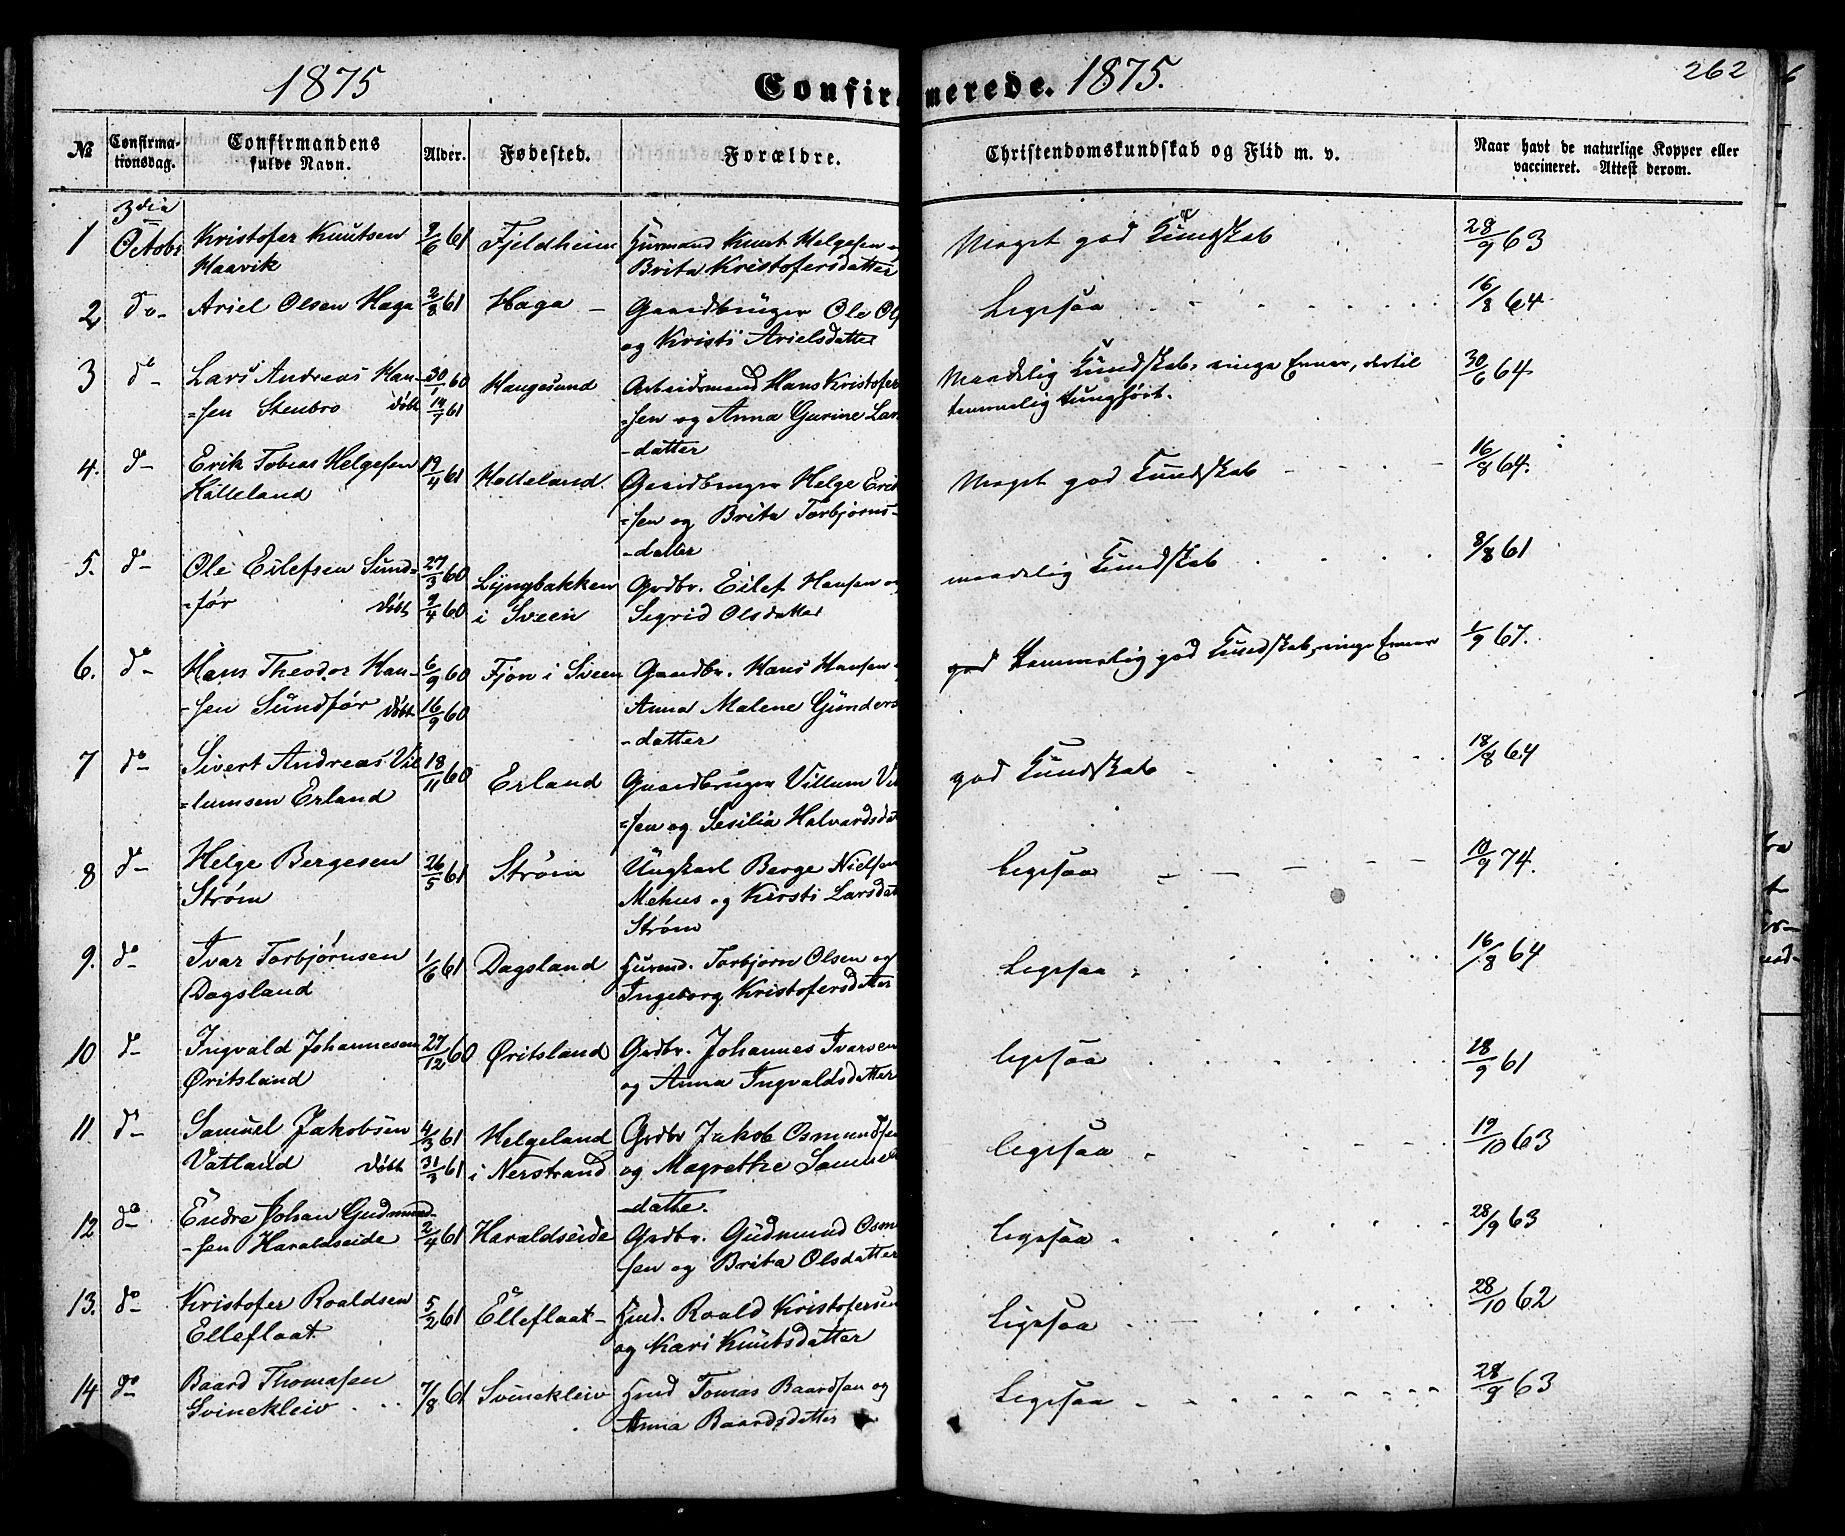 1875 Confirmerede. 1875. 262
№ Confirmationsdag. Confirmandens fulde Navn. Alder. Fødested. Forældre. Christendomskundskab og Flid m. v. Naar havt de naturlige Kopper eller vaccineret. Attest derom.
3dia
1 Octobr Kristofer Knutsen 9/6 61 Fjeldheim Huusmand Knut Helgesen Meget god Kundskab 28/9 63
Haavik Brita Kristofersdatter
2 do Ariel Olsen Haga 2/8 61 Haga Gaardbruger Ole Ols Ligesaa 16/8 64
og Kristi Arielsdatter
3 do Lars Andreas Han- 30/ 60 Haugesund Arbeidsmand Hans Kristofer Maadelig Kundskab, ringe Evner, dertil 30/6 64
=sen Stenbro døbt 14/7 61 =sen og Anna Gurine Lars temmelig tunghørt.
-datter
4. do Erik Tobias Helgesen 19/4 61 Hatteland. Gaardbruger Helge Erik Meget god Kundskab 16/8 64.
Hatteland =sen og Brita Torbjørns-
-datter
5. do Ole Eilefsen Sund= 27/3 60 Lyngbakken Grdbr. Eilef Hansen og maadelig Kundskab 8/8 61
=før døbt 9/4 60 i Sveen Sigrid Olsdatter
6. do Hans Theodor Han- 6/9 60 Fjon i Sveen Gaardbr. Hans Hansen temmelig god Kundskab, ringe Evner 1/9 67.
-sen Sundfør døbt 16/9 60 Anna Malene Gunders
-datter
7 do Sivert Andreas Vil 18/11 60 Erland Gaardbruger Villum Vil god Kundskab 18/8 64
=lumsen Erland =sen og Sesilia Halvardsdat
8 do Helge Bergesen 26/5 61 Strøm Ungkarl Berge Nielsen Ligesaa 10/9 74.
Strøm Mehus og Kirsti Larsdat
Strøm
9. do Ivar Torbjørnsen 1/6 61 Dagsland Husmd. Torbjørn Olsen og Ligesaa 16/8 64
Dagsland Ingeborg Kristofersdatter
10 do Ingvald Johannesen 27/12 60 Øritsland Grdbr. Johannes Ivarsen ligesaa 18/9 61
Øritsland og Anna Ingvaldsdatter
11. do Samuel Jakobsen 4/3 61 Helgeland Grdbr Jakob Osmundsen ligesaa 19/10 63
Vatland døbt 31/3 61 i Nerstrand og Magrethe Samuel
-datter.
12 do Endre Johan Gudmund- 2/4 61 Haraldseide Grdbr. Gudmund Osm Ligesaa 28/9 63
-sen Haraldseide sen og Brita Olsdatter
13. do Kristofer Roaldsen 5/2 61 Elleflaat Hmd. Roald Kristofersen Ligesaa 28/10 62
Elleflaat og Kari Knutsdatter
14 do Baard Thomasen 7/8 61 Svinekleiv Hmd Tomas Baardsen og Ligesaa 28/9 63
Svinekleiv Anna Baardsdatter